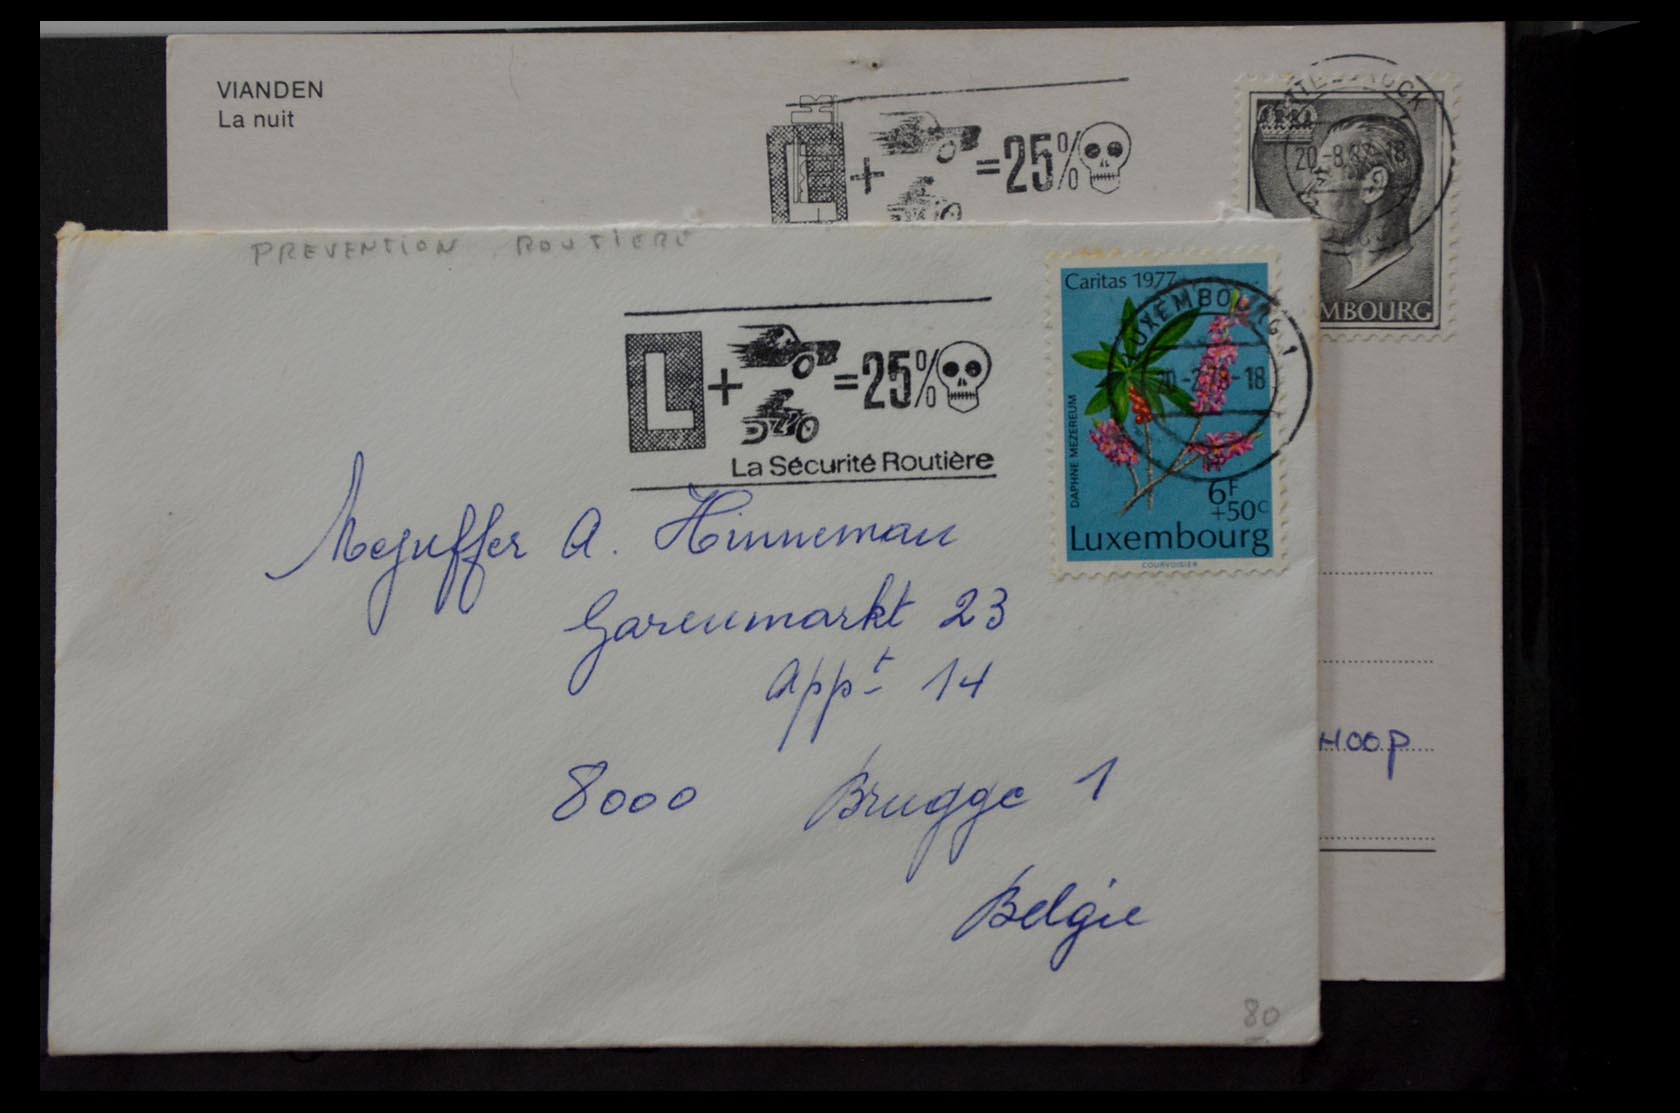 VIANDEN
La nuit
L + = 25%
20.-8. -18
MBOURG
PREVENTION ROUTIERE
L + = 25%
La Sécurité Routière
Caritas 1977
LUXEMBOURG 1
20.-2.78-18
DAPHNE MEZEREUM
6F
+50c
Luxembourg
COURVOISIER
Mejuffer A. Hinneman
Garenmarkt 23
Appt 14
8000 Brugge 1
België
HOOP
80